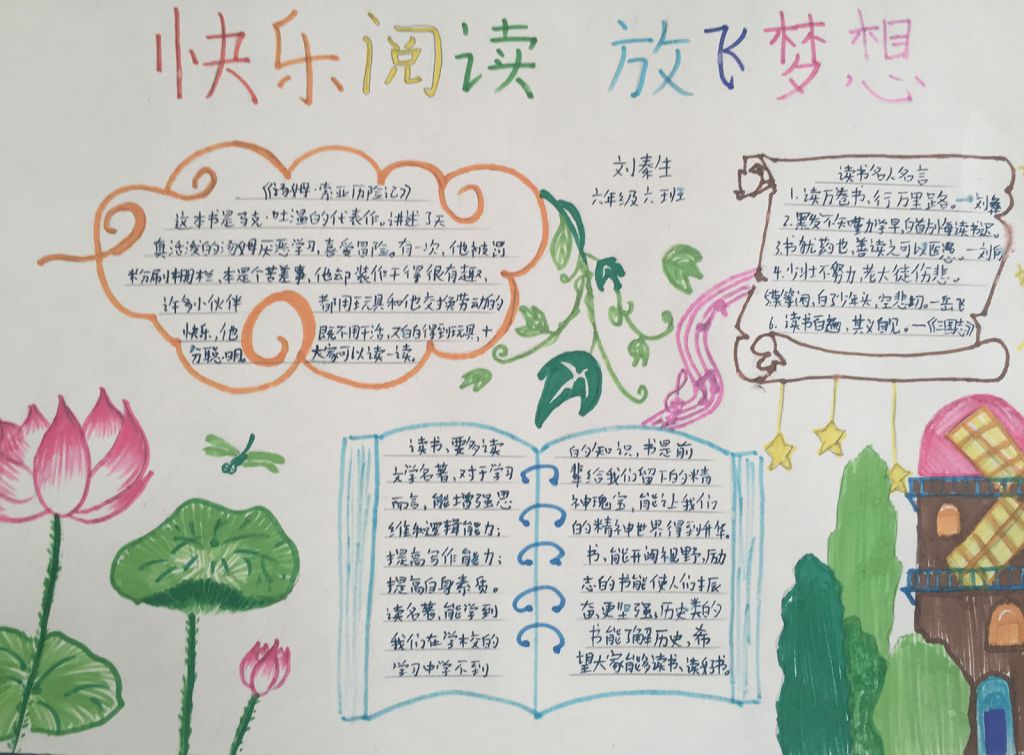 快乐阅读 放飞梦想
刘秦生
六年级六班
《汤姆·索亚历险记》
这本书是马克·吐温的代表作。讲述了天
真活泼的汤姆厌恶学习,喜爱冒险。有一次,他被罚
粉刷栅栏,本是个苦差事,他却装作干得很有趣,
许多小伙伴 都用玩具和他交换劳动的
快乐,他 既不用干活,又白白得到玩具,十
分聪明。 大家可以读一读。
读书名人名言
1.读万卷书,行万里路。
2.黑发不知勤学早,白首方悔读书迟。
3.书犹药也,善读之可以医愚。—刘向
4.少壮不努力,老大徒伤悲。
等闲,白了少年头,空悲切。—岳飞
6.读书百遍,其义自见。—《三国志》
读书,要多读
文学名著,对于学习
而言,能增强思
维和逻辑能力;
提高写作能力;
提高自身素质。
读名著,能学到
我们在学校的
学习中学不到
的知识,书是前
辈给我们留下的精
神瑰宝,能让我们
的精神世界得到升华。
书,能开阔视野,励
志的书能使人们振
奋,更坚强,历史类的
书能了解历史,希
望大家能多读书、读好书。